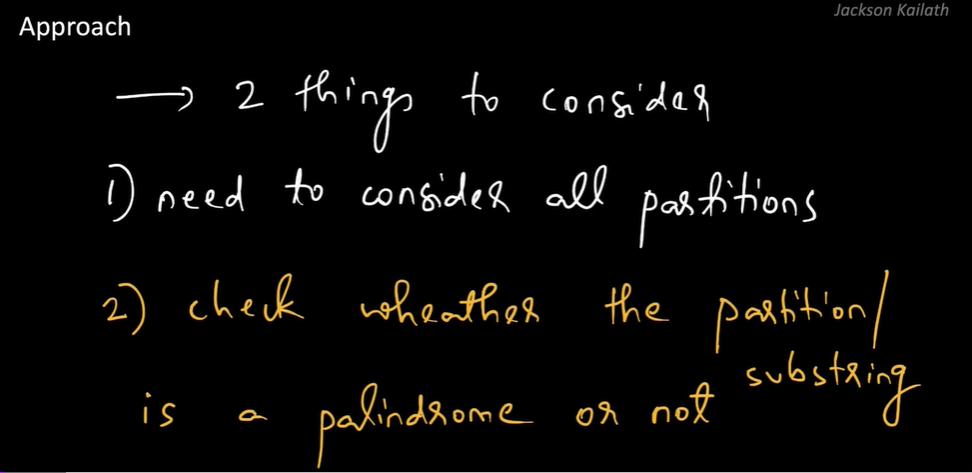 Jackson Kailath
Approach
→ 2 things to consider
1) need to consider all partitions
2) check wheather the partition/
substring
is a palindrome or not